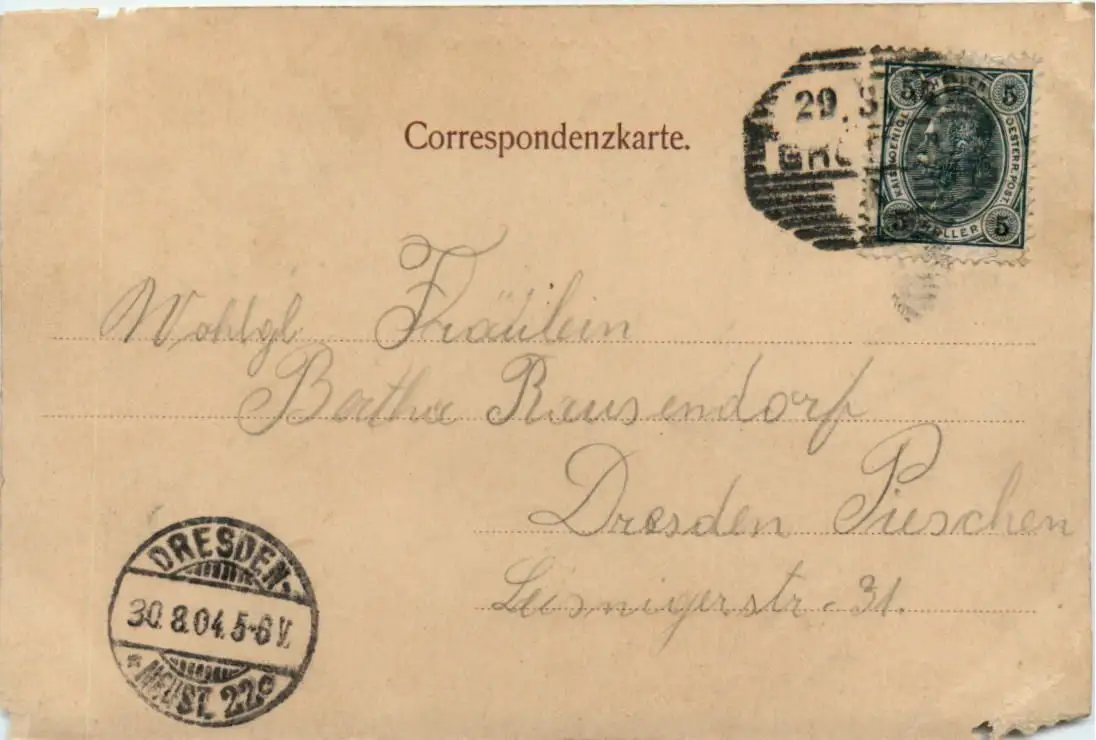 Correspondenzkarte.
29. 8
GRO
5 5
KAIS. KOENIGL. OESTERR. POST
5 HELLER 5
Wohlgl Fräulein
Bertha Rausendorf
Dresden Pieschen
Leisnigerstr. 31.
DRESDEN-
30.8.04.5-6 V.
*NEUST. 22c